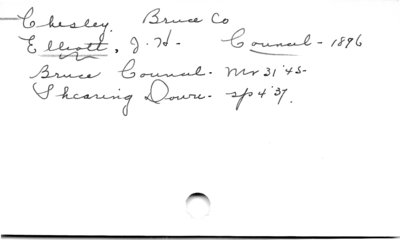 Chesley Bruce Co
Elliott, J. H. Council - 1896
Bruce Council. Mr 31 '45-
Shearing Down. sp 4 '37.